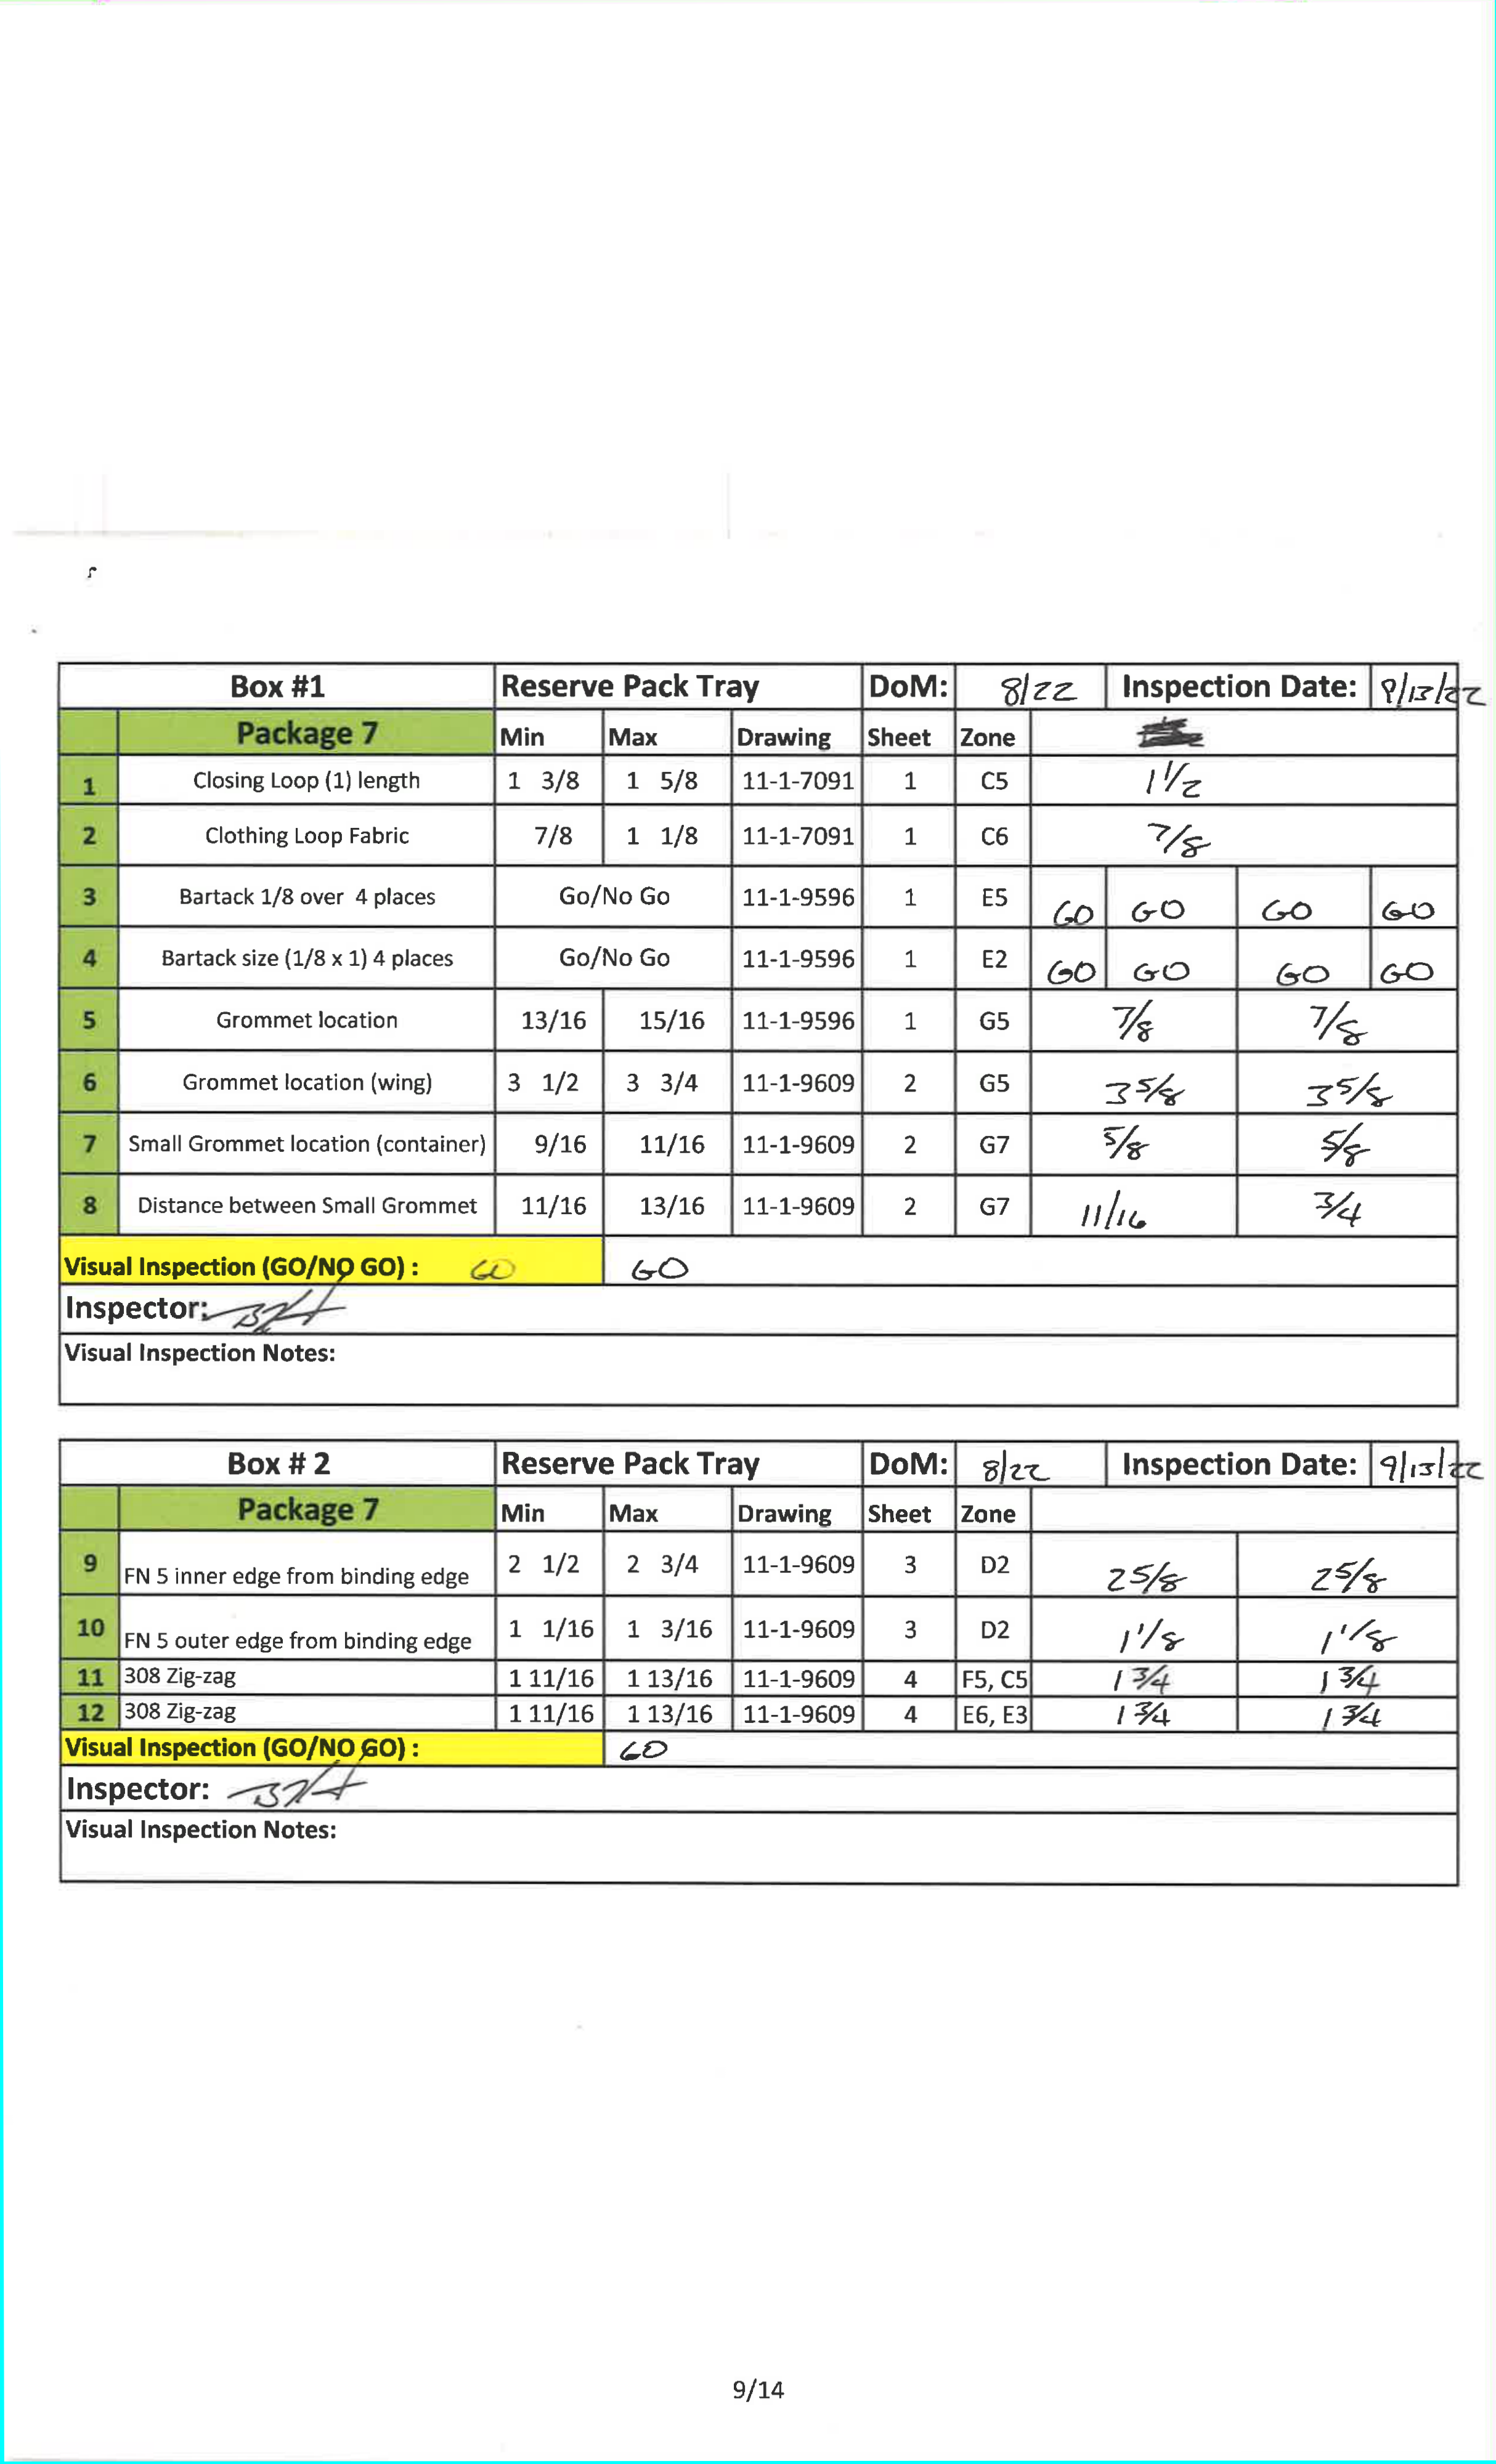 Box #1 Reserve Pack Tray DoM: 8/22 Inspection Date: 9/13/22
Package 7 Min Max Drawing Sheet Zone
1 Closing Loop (1) length 1 3/8 1 5/8 11-1-7091 1 C5 1 1/2
2 Clothing Loop Fabric 7/8 1 1/8 11-1-7091 1 C6 7/8
3 Bartack 1/8 over 4 places Go/No Go 11-1-9596 1 E5 GO GO GO GO
4 Bartack size (1/8 x 1) 4 places Go/No Go 11-1-9596 1 E2 GO GO GO GO
5 Grommet location 13/16 15/16 11-1-9596 1 G5 7/8 7/8
6 Grommet location (wing) 3 1/2 3 3/4 11-1-9609 2 G5 3 5/8 3 5/8
7 Small Grommet location (container) 9/16 11/16 11-1-9609 2 G7 5/8 5/8
8 Distance between Small Grommet 11/16 13/16 11-1-9609 2 G7 11/16 3/4
Visual Inspection (GO/NO GO) : GO GO
Inspector:
Visual Inspection Notes:
Box # 2 Reserve Pack Tray DoM: 8/22 Inspection Date: 9/13/22
Package 7 Min Max Drawing Sheet Zone
9 FN 5 inner edge from binding edge 2 1/2 2 3/4 11-1-9609 3 D2 2 5/8 2 5/8
10 FN 5 outer edge from binding edge 1 1/16 1 3/16 11-1-9609 3 D2 1 1/8 1 1/8
11 308 Zig-zag 1 11/16 1 13/16 11-1-9609 4 F5, C5 1 3/4 1 3/4
12 308 Zig-zag 1 11/16 1 13/16 11-1-9609 4 E6, E3 1 3/4 1 3/4
Visual Inspection (GO/NO GO) : GO
Inspector:
Visual Inspection Notes:
9/14